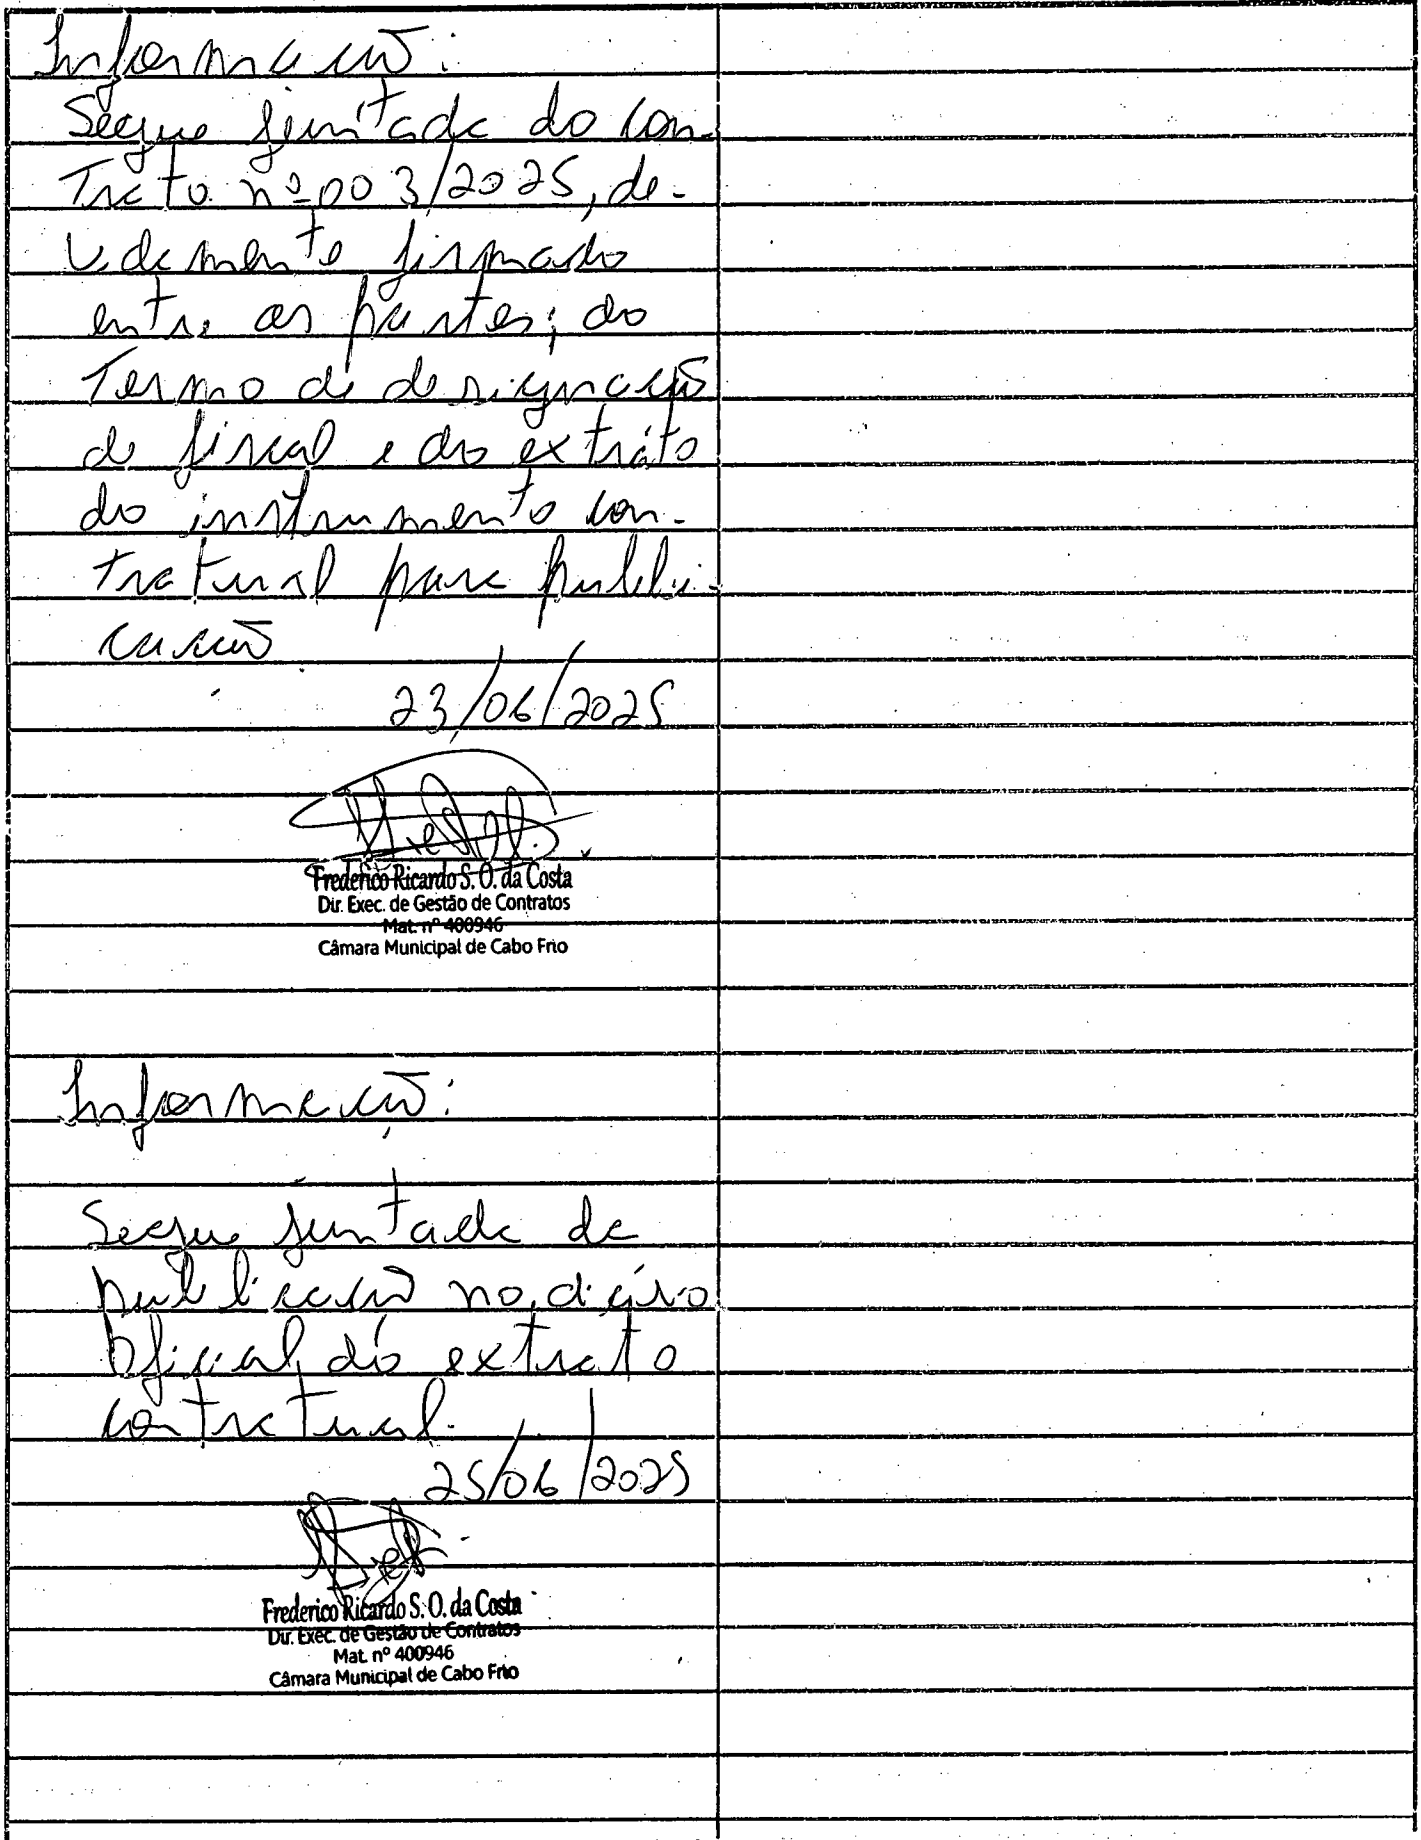 Informação:
Segue juntada do con-
trato nº 003/2025, de-
vidamente firmado
entre as partes; do
Termo de designação
de fiscal e do extrato
do instrumento con-
tratual para publi-
cação
23/06/2025
Frederico Ricardo S. O. da Costa
Dir. Exec. de Gestão de Contratos
Mat. nº 400946
Câmara Municipal de Cabo Frio
Informação:
Segue juntada da
publicação no diário
Oficial do extrato
contratual.
25/06/2025
Frederico Ricardo S. O. da Costa
Dir. Exec. de Gestão de Contratos
Mat. nº 400946
Câmara Municipal de Cabo Frio